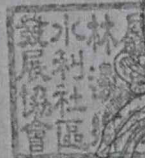 林
水利社區
發展協會